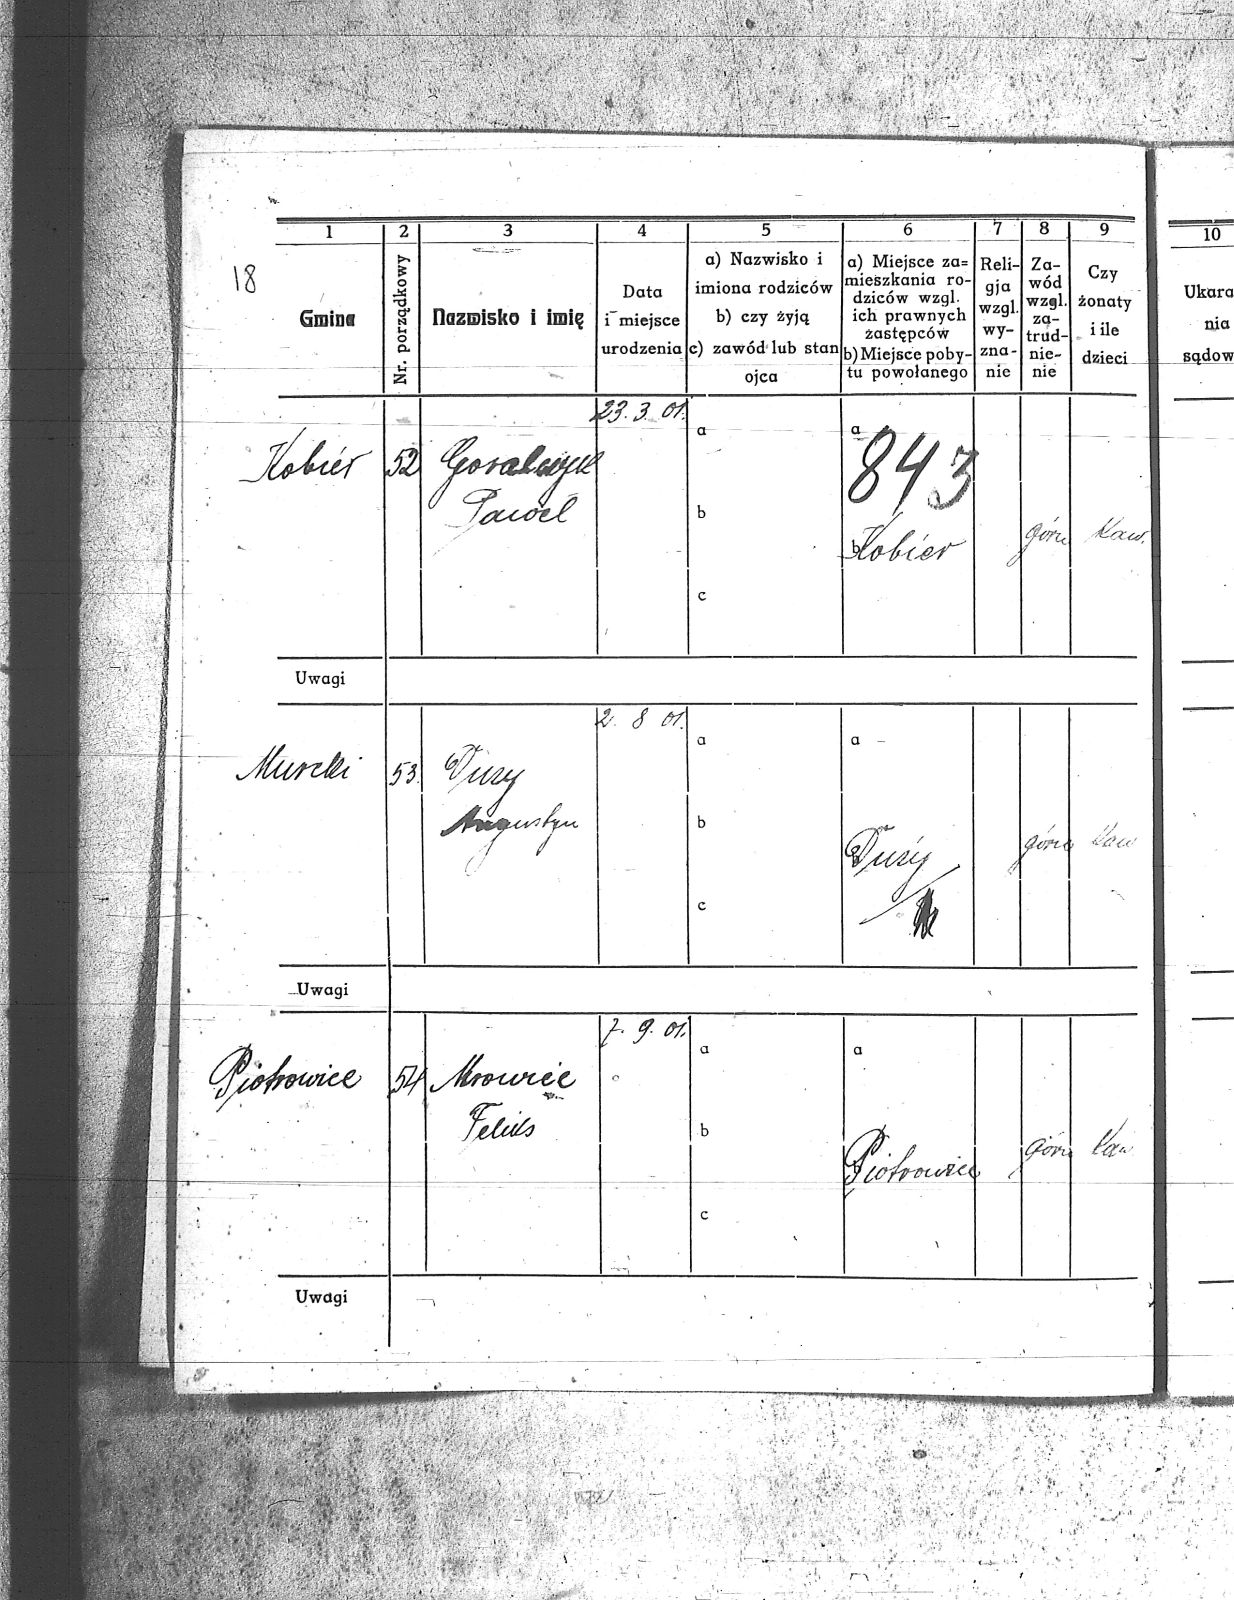 18
1 2 3 4 5 6 7 8 9 10
Gmina
Nr. porządkowy
Nazwisko i imię
Data
i miejsce
urodzenia
a) Nazwisko i
imiona rodziców
b) czy żyją
c) zawód lub stan
ojca
a) Miejsce za=
mieszkania ro-
dziców wzgl.
ich prawnych
zastępców
b) Miejsce poby-
tu powołanego
Reli-
gja
wzgl.
wy-
zna-
nie
Za-
wód
wzgl.
za-
trud-
nie-
nie
Czy
żonaty
i ile
dzieci
Ukara
nia
sądow
23. 3. 01.
Kobiór 52 Goralczyk
Pawel
a a
843
b b Kobiór górn Kaw.
c
Uwagi
2. 8 01.
Murcki 53. Duży
Augustyn
a a
b b Duży górn Kaw
c
Uwagi
7. 9. 01.
Piotrowice 54 Mrowiec
Feliks
a a
b b Piotrowice górn Kaw
c
Uwagi